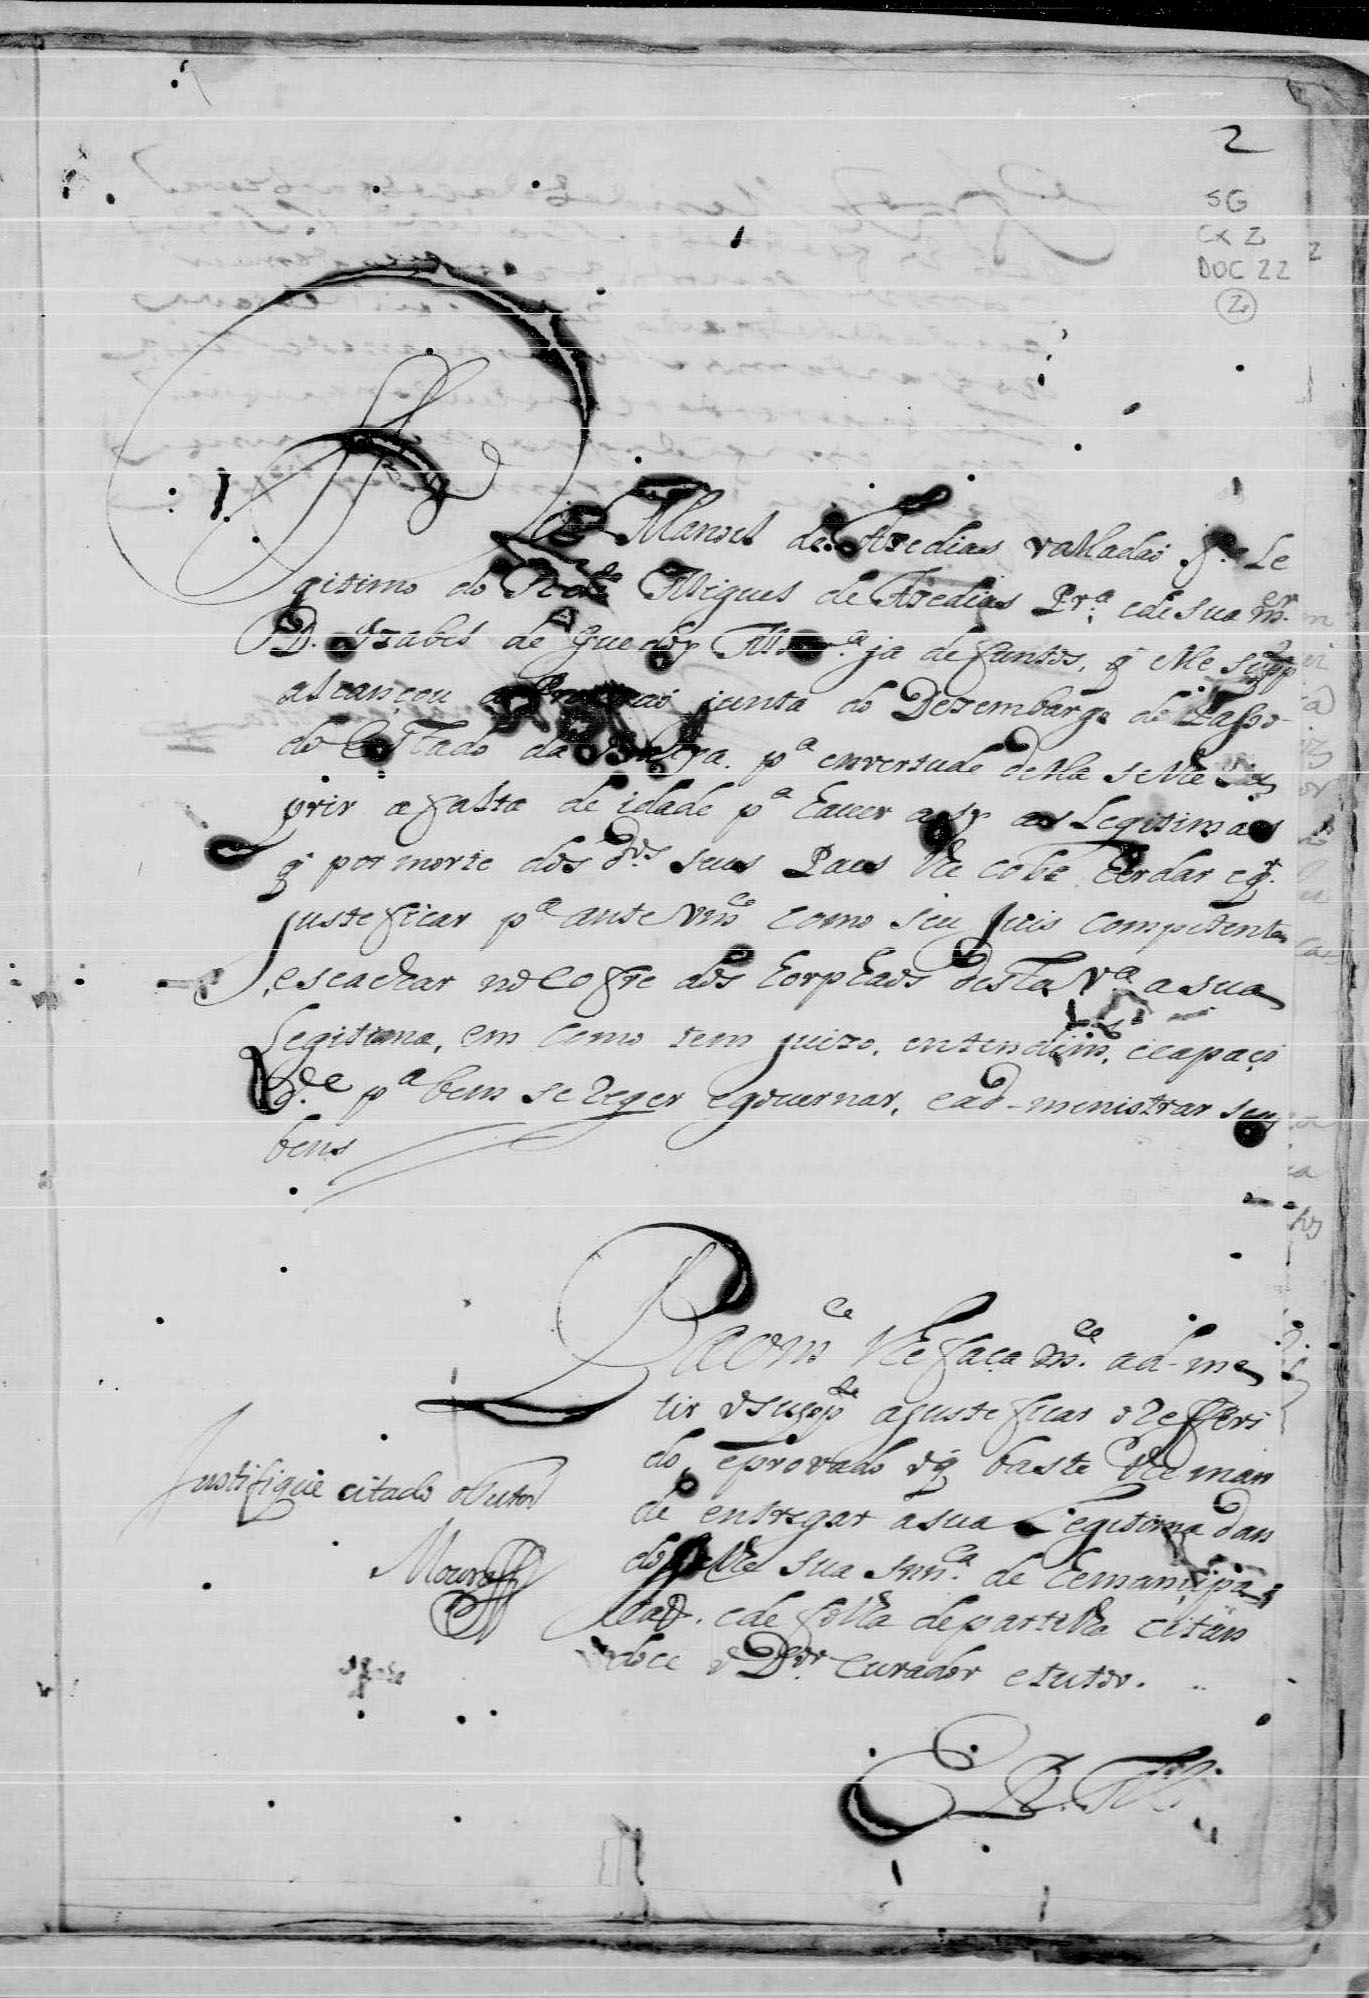 2
SG
CX 2
DOC 22
2
Manoel de Azedias valladaõ f.º Le
gitimo do Miguel de Azedias Pr.ª e de sua m.er
D. Izabel de Guedes ja defuntos, q̃ elle supp
alcançou a junta do Dezembargo do Passo
do Estado da India. p.ª em versude della se lhe
prir a falta de idade p.ª hauer a sy as Legitimas
q̃ por morte dos d.os seus Paes lhe cobe herdar e q.r
justeficar p.ª ante Vm.ce como seu Juis competente
e seachar no Cofre dos horphaõs desta V.ª a sua
Legitima, em como tem juizo, entendim.to, e capaçi
d.de p.ª bem se reger e gouernar, e ad-menistrar seus
bens
P a Vm.ce lhe faça m.ce ad-me
tir o supp.te a justeficar o referi
do, e provado o q̃ baste lhe man
de entregar a sua Legitima dan
do selhe sua snn.ça de hemançipa
caõ. e de folha de partilha citan
doce o D.or Curador e tutor.
E R. M.
Justifique citado o Tutor
Moura